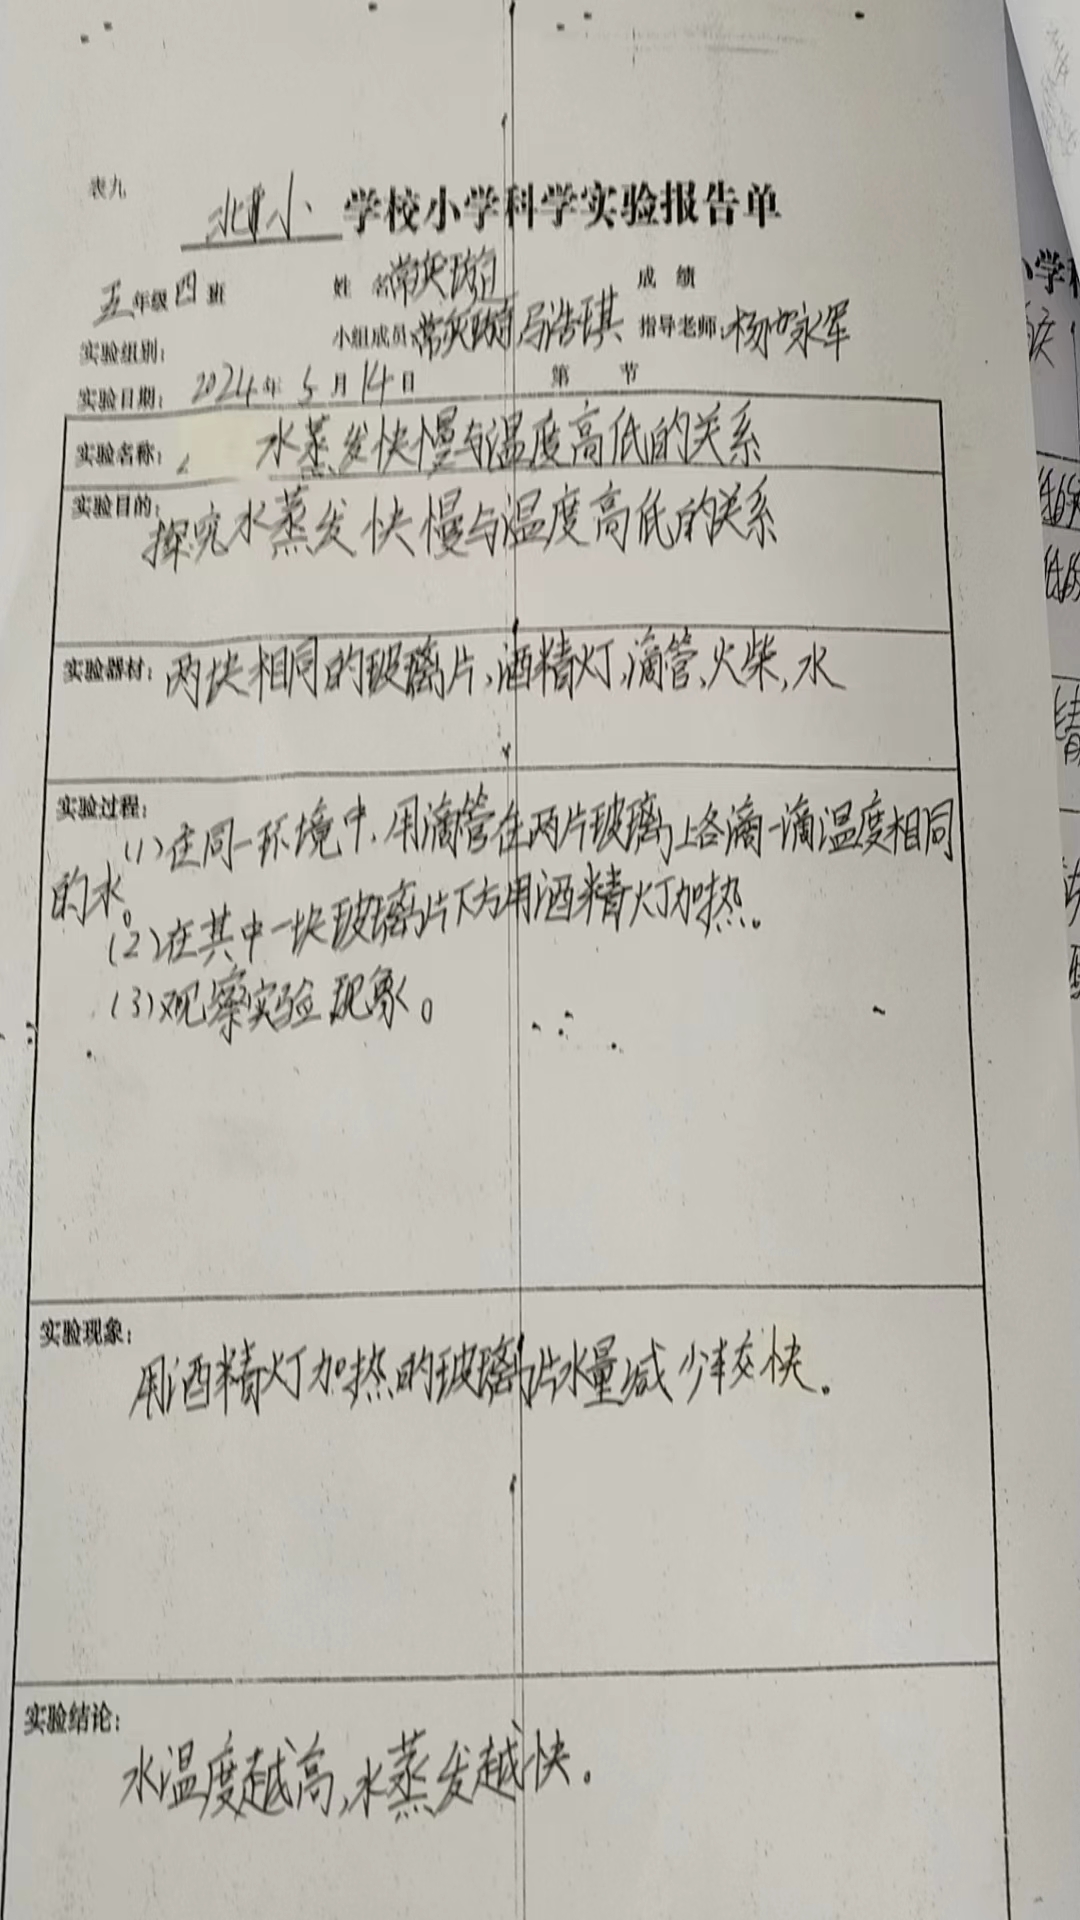 表九
北小 学校小学科学实验报告单
五年级四班 姓名 成绩
实验组别: 小组成员: 马浩琪 指导老师: 杨永军
实验日期: 2024年5月14日 第 节
实验名称: 水蒸发快慢与温度高低的关系
实验目的:
探究水蒸发快慢与温度高低的关系
实验器材: 两块相同的玻璃片、酒精灯、滴管、火柴、水
实验过程:
(1)在同一环境中,用滴管在两片玻璃上各滴一滴温度相同
的水。
(2)在其中一块玻璃片下方用酒精灯加热。
(3)观察实验现象。
实验现象:
用酒精灯加热的玻璃片水量减少较快。
实验结论:
水温度越高,水蒸发越快。